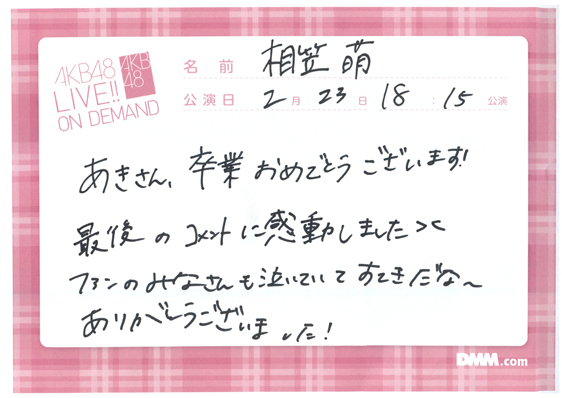 AKB48
LIVE!!
ON DEMAND
AKB
48
名前 相笠 萌
公演日 2月 23日 18:15 公演
あきさん、卒業おめでとうございます!
最後のコメントに感動しました><
ファンのみなさんも泣いていてすてきだな〜
ありがとうございました!
DMM.com